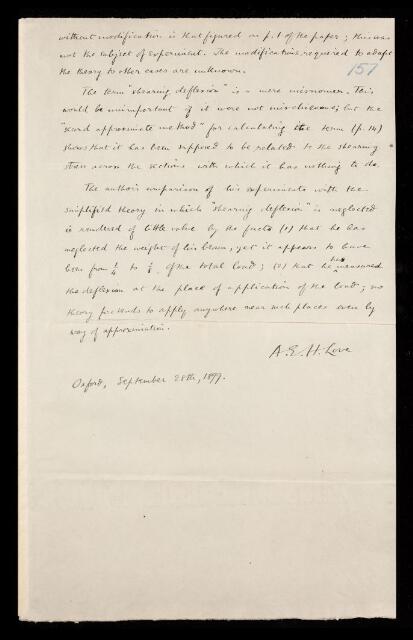 without modification is that figured on p. 1 of the paper; this was
not the subject of experiment. The modifications required to adapt
the theory to other cases are unknown.
157
The term "shearing deflexion" is a mere misnomer. This
would be unimportant if it were not mischievous; but the
"second approximate method" for calculating the term (p. 14)
shows that it has been supposed to be related to the shearing
stress across the sections with which it has nothing to do.
The author's comparison of his experiments with the
simplified theory in which "shearing deflexion" is neglected
is rendered of little value by the facts (1) that he has
neglected the weight of his beams, yet it appears to have
been from 1/4 to of the total load; (2) that he has measured
the deflexion at the place of application of the load; no
theory pretends to apply anywhere near such places even by
way of approximation.
A. E. H. Love
Oxford, September 28th, 1899.